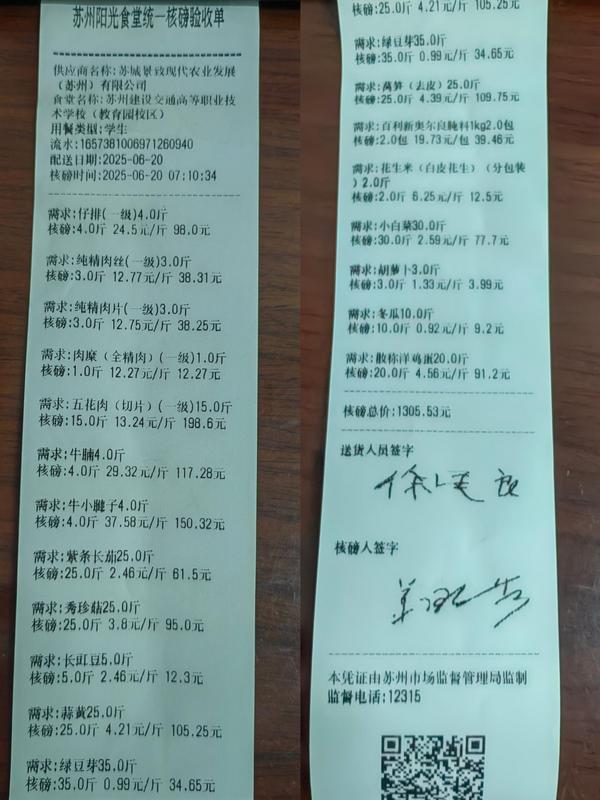 苏州阳光食堂统一核磅验收单
供应商名称:苏城景致现代农业发展
（苏州）有限公司
食堂名称:苏州建设交通高等职业技
术学校（教育园校区）
用餐类型:学生
流水:1657381006971260940
配送日期:2025-06-20
核磅时间:2025-06-20 07:10:34
需求:仔排(一级)4.0斤
核磅:4.0斤 24.5元/斤 98.0元
需求:纯精肉丝(一级)3.0斤
核磅:3.0斤 12.77元/斤 38.31元
需求:纯精肉片(一级)3.0斤
核磅:3.0斤 12.75元/斤 38.25元
需求:肉糜（全精肉）(一级)1.0斤
核磅:1.0斤 12.27元/斤 12.27元
需求:五花肉（切片）(一级)15.0斤
核磅:15.0斤 13.24元/斤 198.6元
需求:牛腩4.0斤
核磅:4.0斤 29.32元/斤 117.28元
需求:牛小腱子4.0斤
核磅:4.0斤 37.58元/斤 150.32元
需求:紫条长茄25.0斤
核磅:25.0斤 2.46元/斤 61.5元
需求:秀珍菇25.0斤
核磅:25.0斤 3.8元/斤 95.0元
需求:长豇豆5.0斤
核磅:5.0斤 2.46元/斤 12.3元
需求:蒜黄25.0斤
核磅:25.0斤 4.21元/斤 105.25元
需求:绿豆芽35.0斤
核磅:35.0斤 0.99元/斤 34.65元
核磅:25.0斤 4.21元/斤 105.25元
需求:绿豆芽35.0斤
核磅:35.0斤 0.99元/斤 34.65元
需求:莴笋（去皮）25.0斤
核磅:25.0斤 4.39元/斤 109.75元
需求:百利新奥尔良腌料1kg2.0包
核磅:2.0包 19.73元/包 39.46元
需求:花生米（白皮花生）（分包装
）2.0斤
核磅:2.0斤 6.25元/斤 12.5元
需求:小白菜30.0斤
核磅:30.0斤 2.59元/斤 77.7元
需求:胡萝卜3.0斤
核磅:3.0斤 1.33元/斤 3.99元
需求:冬瓜10.0斤
核磅:10.0斤 0.92元/斤 9.2元
需求:散称洋鸡蛋20.0斤
核磅:20.0斤 4.56元/斤 91.2元
核磅总价:1305.53元
送货人员签字
核磅人签字
本凭证由苏州市场监督管理局监制
监督电话:12315